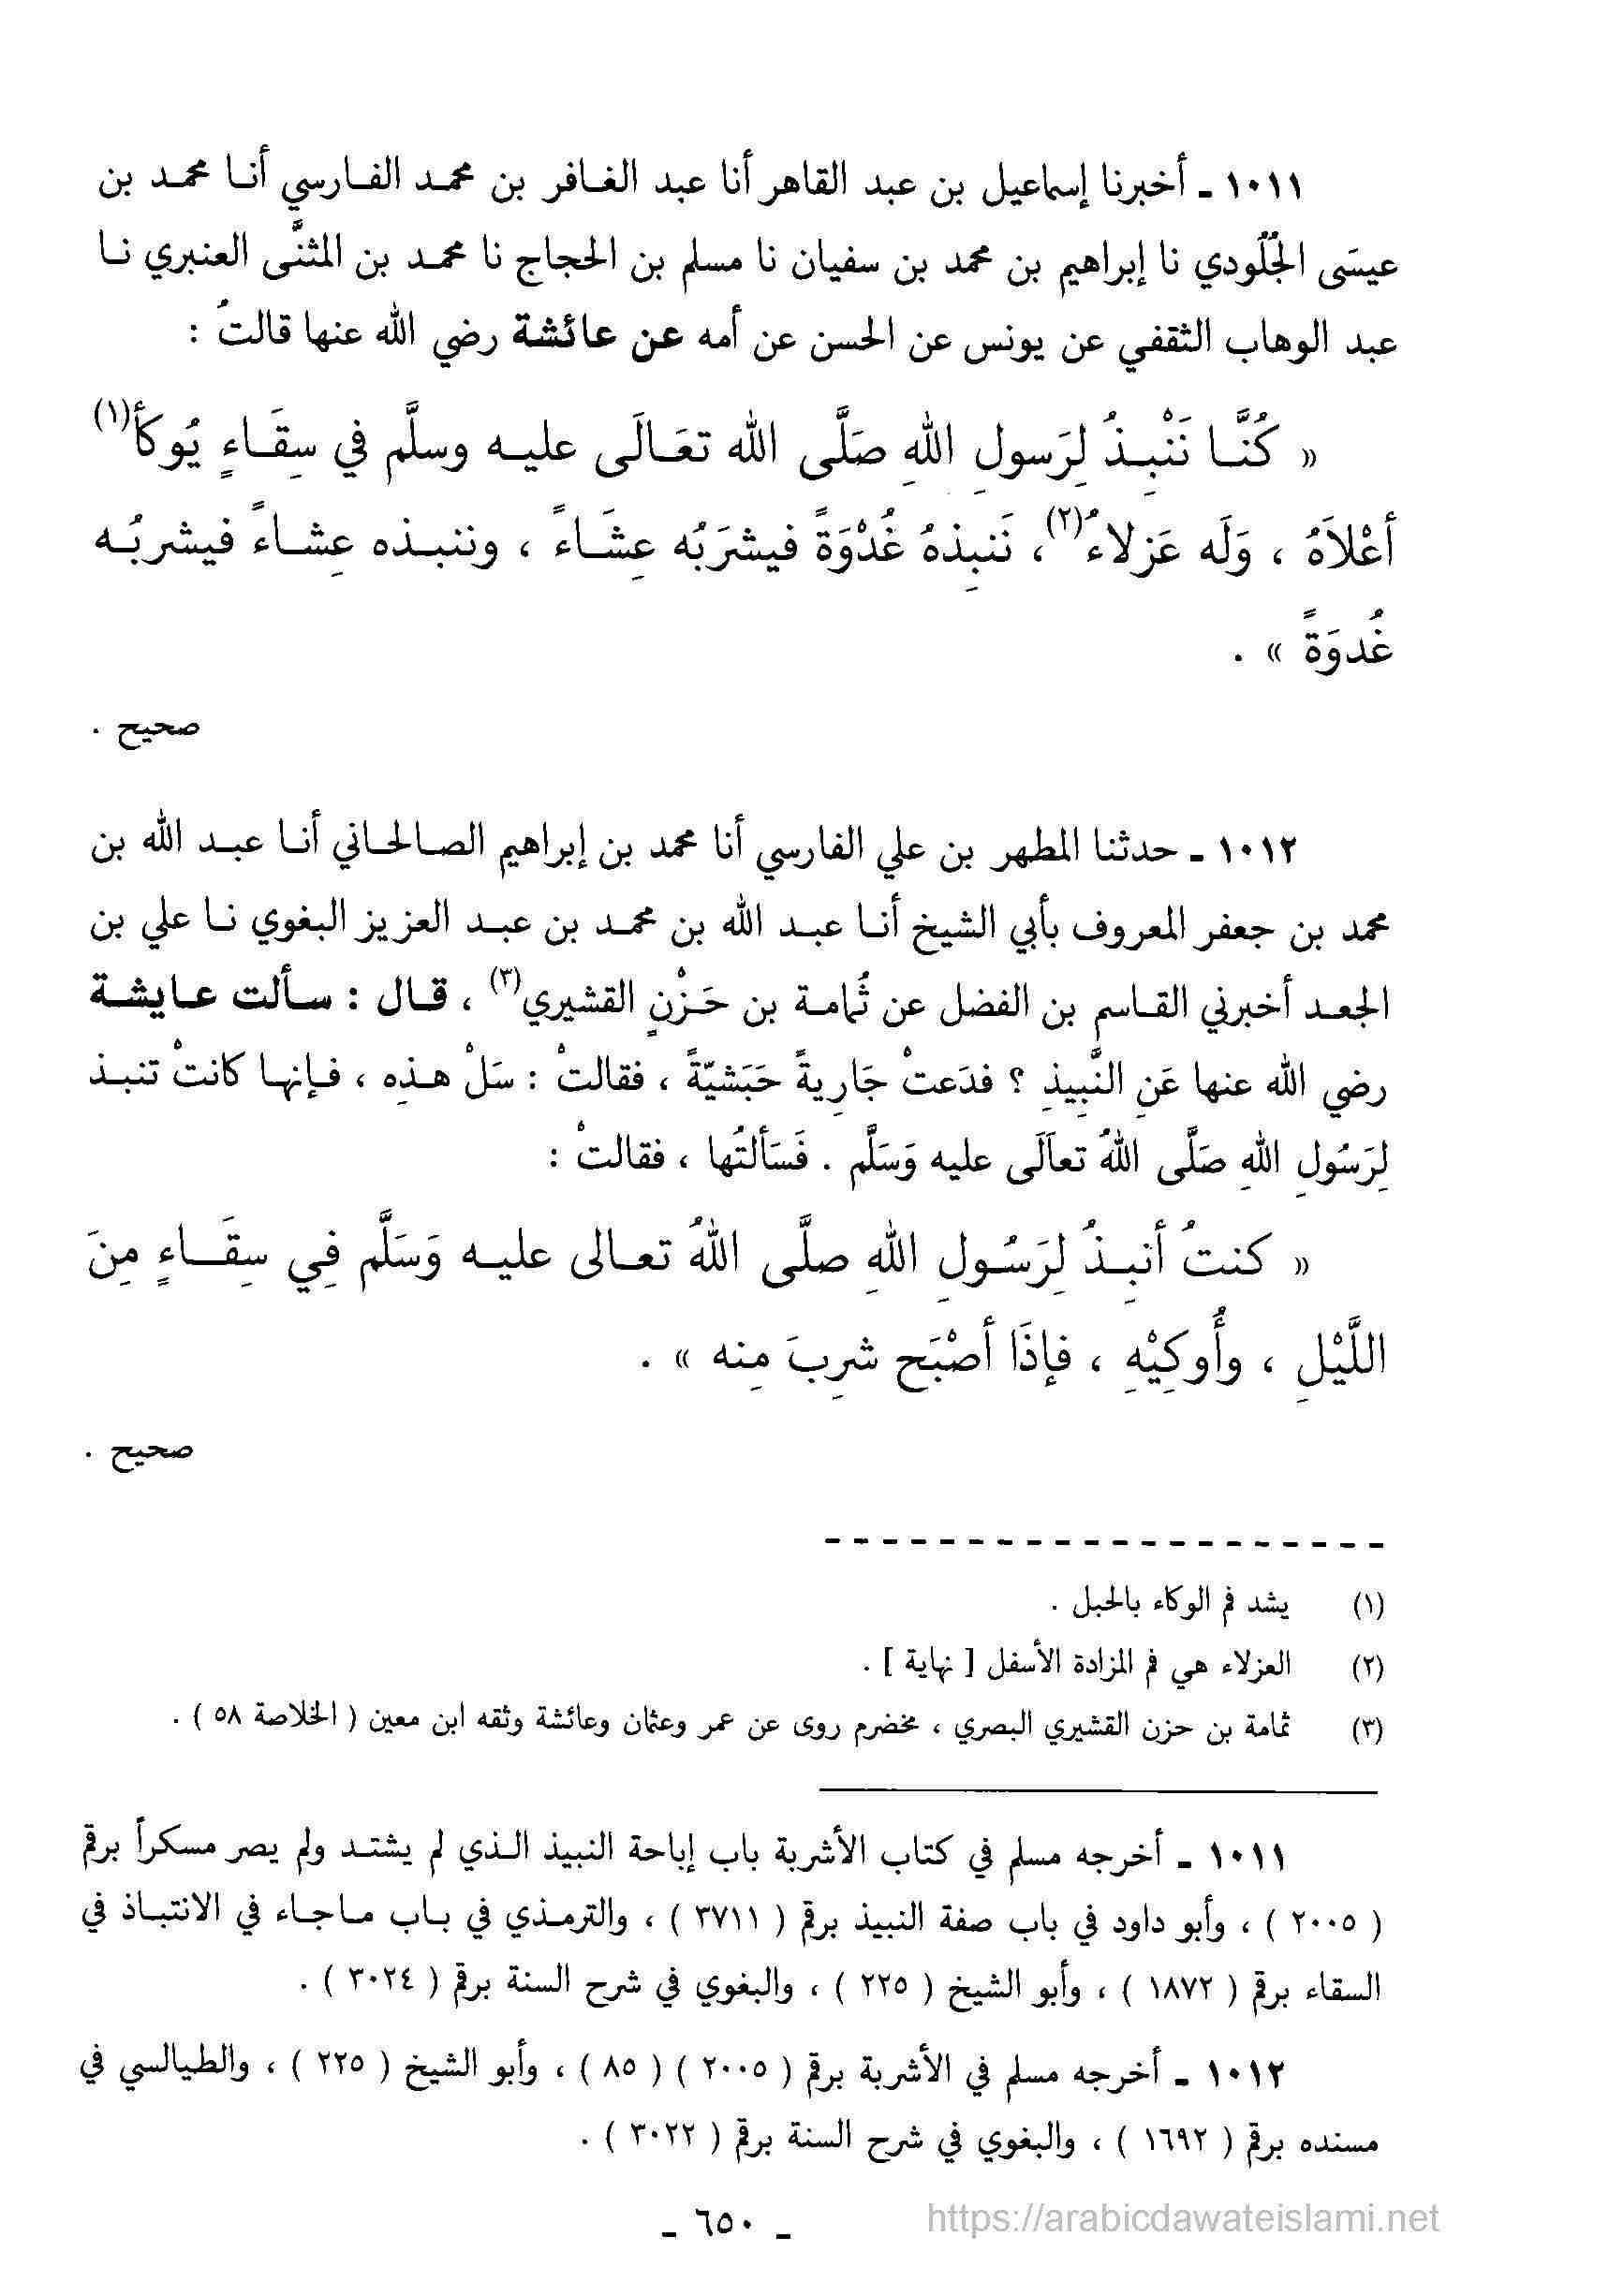 ١٠١١ ـ أخبرنا إسماعيل بن عبد القاهر أنا عبد الغافر بن محمد الفارسي أنا محمد بن
عيسَى الجُلُودي نا إبراهيم بن محمد بن سفيان نا مسلم بن الحجاج نا محمد بن المثنَّى العنبري نا
عبد الوهاب الثقفي عن يونس عن الحسن عن أمه عن عائشة رضي الله عنها قالتْ :
« كُنَّا نَنْبِذُ لِرَسولِ اللهِ صَلَّى الله تعَالَى عليه وسلَّم في سِقَاءٍ يُوكَأُ(١)
أعْلاَهُ ، وَلَه عَزلاءُ(٢)، نَنبِذهُ غُدْوَةً فيشرَبُه عِشَاءً ، وننبذه عِشاءً فيشربُه
غُدوَةً » .
صحيح .
١٠١٢ ـ حدثنا المطهر بن علي الفارسي أنا محمد بن إبراهيم الصالحاني أنا عبد الله بن
محمد بن جعفر المعروف بأبي الشيخ أنا عبد الله بن محمد بن عبد العزيز البغوي نا علي بن
الجعد أخبرني القاسم بن الفضل عن ثُمامة بن حَزْنٍ القشيري(٣) ، قال : سألت عايشة
رضي الله عنها عَنِ النَّبِيذِ ؟ فدَعتْ جَارِيةً حَبَشيّةً ، فقالتْ : سَلْ هذِه ، فإنها كانتْ تنبذ
لِرَسُولِ اللهِ صَلَّى اللهُ تعاَلَى عليه وَسَلَّم . فَسَألتُها ، فقالتْ :
« كنتُ أنبِذُ لِرَسُولِ اللهِ صلَّى اللهُ تعالى عليه وَسَلَّم فِي سِقَاءٍ مِنَ
اللَّيْلِ ، وأُوكِيْهِ ، فإذَا أصْبَح شرِبَ مِنه » .
صحيح .
(١) يشد فم الوكاء بالحبل .
(٢) العزلاء هي فم المزادة الأسفل [ نهاية ] .
(٣) ثمامة بن حزن القشيري البصري ، مخضرم روى عن عمر وعثمان وعائشة وثقه ابن معين ( الخلاصة ٥٨ ) .
١٠١١ ـ أخرجه مسلم في كتاب الأشربة باب إباحة النبيذ الذي لم يشتد ولم يصر مسكراً برقم
( ٢٠٠٥ ) ، وأبو داود في باب صفة النبيذ برقم ( ٣٧١١ ) ، والترمذي في باب ماجاء في الانتباذ في
السقاء برقم ( ١٨٧٢ ) ، وأبو الشيخ ( ٢٢٥ ) ، والبغوي في شرح السنة برقم ( ٣٠٢٤ ) .
١٠١٢ ـ أخرجه مسلم في الأشربة برقم ( ٢٠٠٥ ) ( ٨٥ ) ، وأبو الشيخ ( ٢٢٥ ) ، والطيالسي في
مسنده برقم ( ١٦٩٢ ) ، والبغوي في شرح السنة برقم ( ٣٠٢٢ ) .
ـ ٦٥٠ ـ
https://arabicdawateislami.net